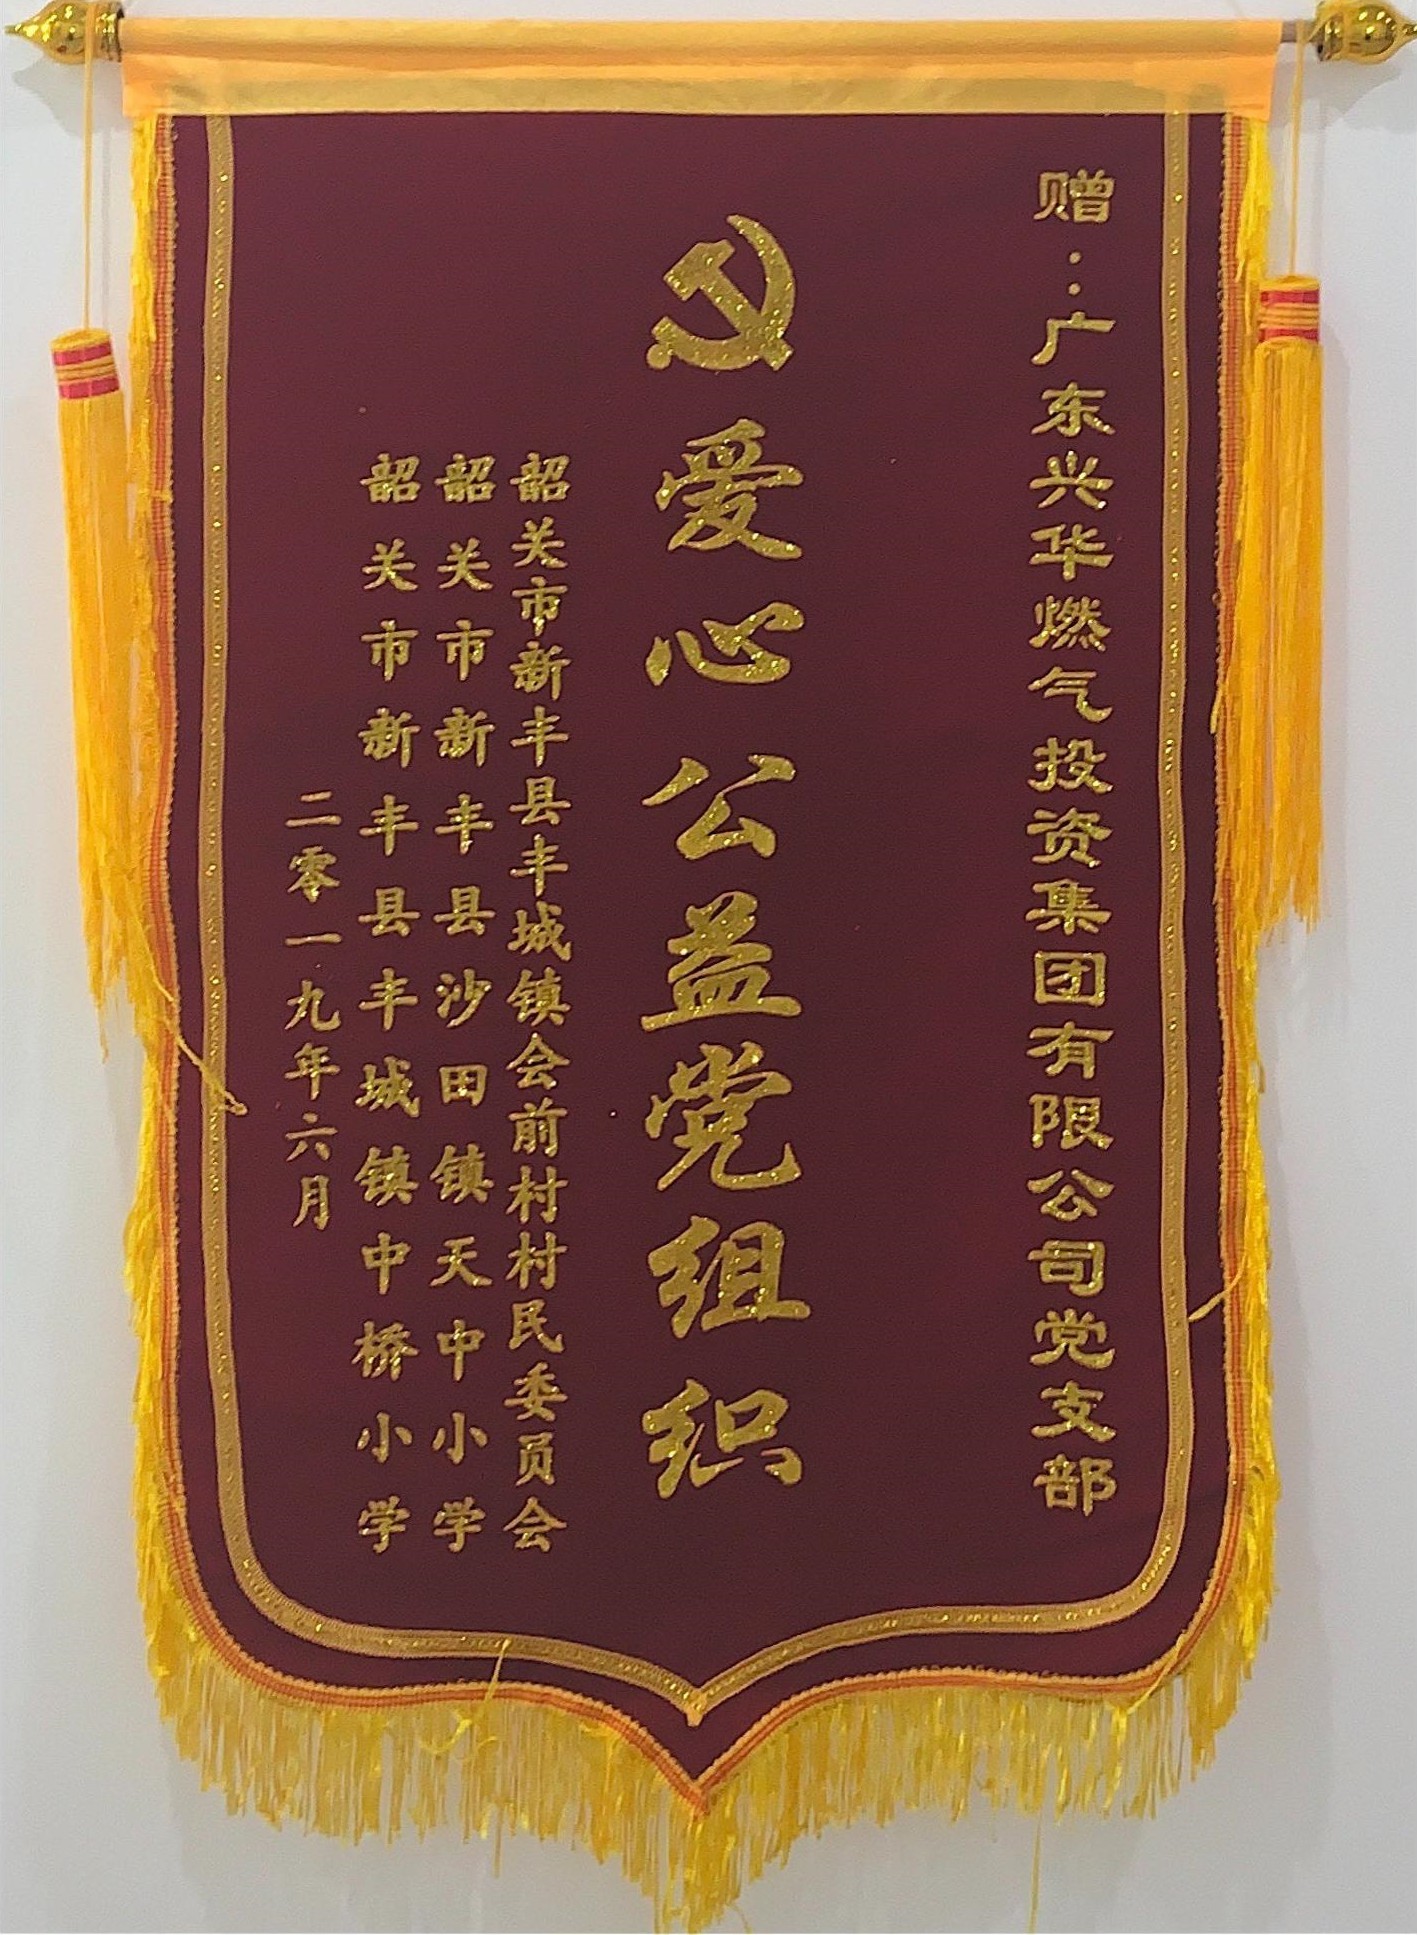 赠：广东兴华燃气投资集团有限公司党支部
爱心公益党组织
韶关市新丰县丰城镇会前村村民委员会
韶关市新丰县沙田镇天中小学
韶关市新丰县丰城镇中桥小学
二零一九年六月